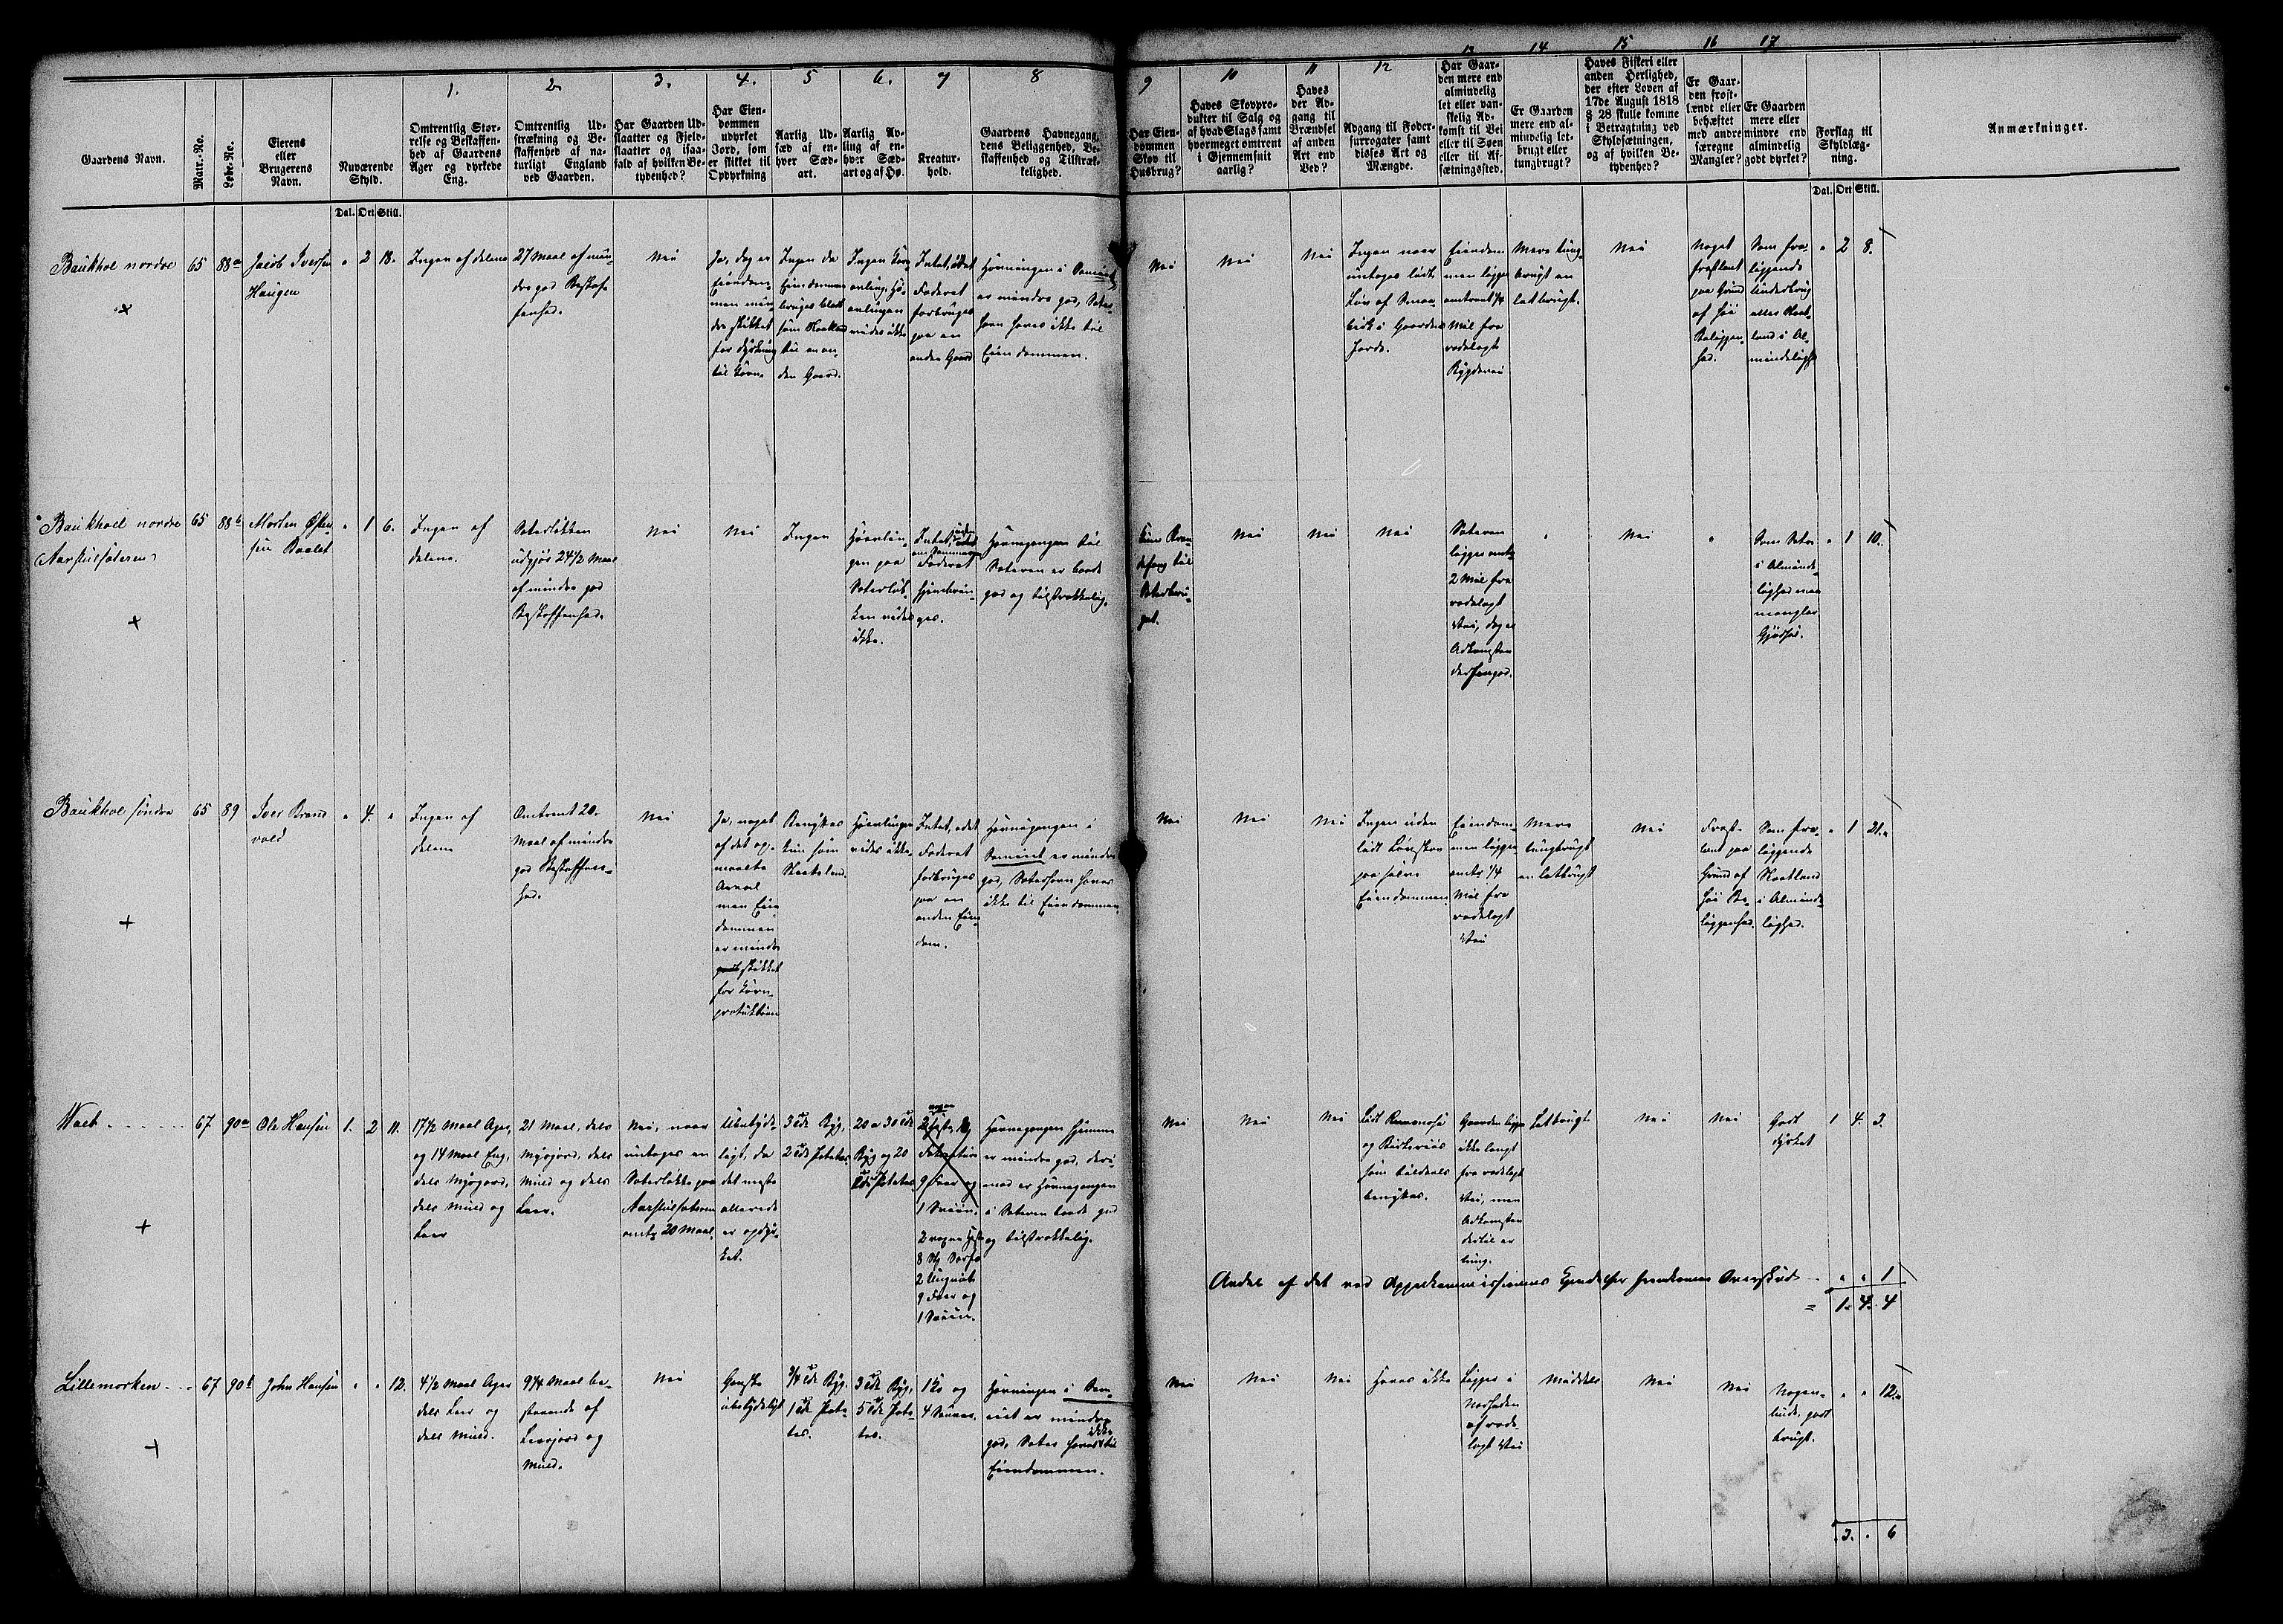 1. 2. 3. 4. 5 6. 7 8 9 10 11 12 13 14 15 16 17
Gaardens Navn.
Matr.-No.
Løbe-No.
Eierens
eller
Brugerens
Navn.
Nuværende
Skyld.
Dal. Ort Skill.
Omtrentlig Stør-
relse og Beskaffen-
hed af Gaardens
Ager og dyrkede
Eng.
Omtrentlig Ud-
strækning og Be-
skaffenhed af na-
turligt England
ved Gaarden.
Har Gaarden Ud-
slaatter og Fjeld-
slaatter og isaa-
fald af hvilken Be-
tydenhed?
Har Eien-
dommen
udyrket
Jord, som
er skikket til
Opdyrkning
Aarlig Ud-
sæd af en-
hver Sæd-
art.
Aarlig Av-
ling af en-
hver Sæd-
art og af Hø.
Kreatur-
hold.
Gaardens Havnegang,
dens Beliggenhed, Be-
skaffenhed og Tilstræk-
kelighed.
Har Eien-
dommen
Skov til
Husbrug?
Haves Skovpro-
dukter til Salg og
af hvad Slags samt
hvormeget omtrent
i Gjennemsnit
aarlig?
Haves
der Ad-
gang til
Brændsel
af anden
Art end
Ved?
Adgang til Foder-
surrogater samt
disses Art og
Mængde.
Har Gaar-
den mere end
almindelig
let eller van-
skelig Ad-
komst til Vei
eller til Søen
eller til Af-
sætningssted.
Er Gaarden
mere end al-
mindelig let-
brugt eller
tungbrugt?
Haves Fiskeri eller
anden Herlighed,
der efter Loven af
17de August 1818
§ 28 skulle komme
i Betragtning ved
Skyldsætningen,
og af hvilken Be-
tydenhed?
Er Gaar-
den frost-
lændt eller
behæftet
med andre
særegne
Mangler?
Er Gaarden
mere eller
mindre end
almindelig
godt dyrket?
Forslag til
Skyldlæg-
ning.
Dal. Ort Skill.
Anmærkninger.
Baukhol nordre 65 88a
Jacob Iversen
Haugen
" 2 18.
Ingen af delene
27 Maal af min-
dre god Beskaf-
fenhed.
Nei
Ja, dog er
Eiendom-
men min-
dre skikket
for Dyrkning
til Korn
Ingen da
Eiendommen
bruges blot
som Slaatteland
til en an-
den Gaard.
Ingen Korn-
avling, Hø-
avlingen
vides ikke
Intet, idet
Foderet
forbruges
paa en
anden Gaard
Havningen i Sameiet
er mindre god, Sæter-
havn haves ikke til
Eiendommen.
Nei
Nei
Nei
Ingen naar
undtages lidt
Løv af Smaa-
birk i Gaardens
Jorde.
Eiendom-
men ligger
omtrent 1/4
Mil fra
rodelagt
Bygdevei
Mere tung-
brugt en
letbrugt.
Nei
Noget
frostlent
paa Grund
af høi
Beliggen-
hed.
Som fra-
liggende
Underbrug
eller Slaat-
land i Al-
mindelighed
" 2 8.
Baukhol nordre 65 88b
(Aarstulsæteren)
Morten Østen-
sen Baalet
" 1 6.
Ingen af
delene.
Sæterløkken
udgjør 24 1/2 Maal
af mindre god
Beskaffenhed.
Nei
Nei
Ingen
Høavlin-
gen paa
Sæterløk-
ken vides
ikke.
Intet, uden
om Sommeren
Foderet
hjembrin-
ges.
Havnegangen til
Sæteren er baade
god og tilstrækkelig.
Kun Bræn-
defang til
Sæterbru-
get.
Nei
Nei
Nei
Sæteren
ligger omtr.
2 Mil fra
rodelagt
Vei, dog er
Adkomsten
derhen god.
"
Nei
"
Som Sæter
i Alminde-
lighed men
mangler
Gjødsel.
" 1 10.
Baukhol søndre 65 89
Iver Brand-
vold
" 4. "
Ingen af
delene
Omtrent 20
Maal af mindre
god Beskaffen-
hed.
Nei
Ja, noget
af det op-
maalte
Areal
men Eien-
dommen
er mindre
skikket
for Korn-
produktion
Benyttes
kun som
Slaatteland.
Høavlingen
vides ikke.
Intet, idet
Foderet
forbruges
paa en
anden Eien-
dom.
Havnegangen i
Sameiet er mindre
god, Sæterhavn haves
ikke til Eiendommen
Nei
Nei
Nei
Ingen uden
lidt Løvskov
paa selve
Eiendommen
Eiendom-
men ligger
omtr. 1/4
Mil fra
rodelagt
Vei
Mere
tungbrugt
en letbrugt
Nei
Frost-
lent paa
Grund af
høi Be-
liggenhed.
Som fra-
liggende
Slaatland
i Alminde-
lighed.
" 1 21.
67 90a
Ole Hansen
1. 2 11.
17 1/2 Maal Ager,
og 14 Maal Eng,
dels Myrjord,
dels Muld og
Leer
21 Maal, dels
Myrjord, dels
Muld og dels
Leer.
Nei, naar
undtages en
Sæterløkke paa
Aarstulsæteren
omtr. 20 Maal.
Ubetyde-
ligt, da
det meste
allerede
er opdyr-
ket.
3 Tdr Byg,
2 Tdr Poteter.
20 a 30 Tdr
Byg og 20
Tdr Poteter.
9 Faar og
1 Sviin.
2 voxne Heste
8 Stk Storfæ
2 Ungnøt
9 Faar og
1 Sviin.
Havnegangen hjemme
er mindre god, deri-
mod er Havnegangen
i Sæteren baade god
og tilstrækkelig.
Nei
Nei
Nei
Lidt Renmose
og Birkeriis
som tildeels
benyttes.
Gaarden ligger
ikke langt
fra rodelagt
Vei, men
Adkomsten
dertil er
tung.
Letbrugt
Nei
Nei
Godt
dyrket
1 4. 3.
Andel af det ved Appelkommissionens Kjendelser fremkomne Overskud " " 1
= 1 4 4
Lillemorken 67 90b
John Hansen
" " 12.
4 1/2 Maal Ager
dels Leer og
dels Muld.
9 1/4 Maal be-
staaende af
Leerjord og
Muld.
Nei
Ganske
ubetydeligt
3/4 Td Byg.
1 Td Pote-
ter.
3 Tdr Byg,
5 Tdr Pote-
ter.
1 Ko og
4 Sauer.
Havningen i Sam-
eiet er mindre
god, Sæter haves ikke til
Eiendommen.
Nei
Nei
Nei
Haves ikke
Ligger i
Nærheden
af rode-
lagt Vei
Middels
Nei
Nei
Nogen-
lunde godt
brugt.
" " 12.
3. " 6